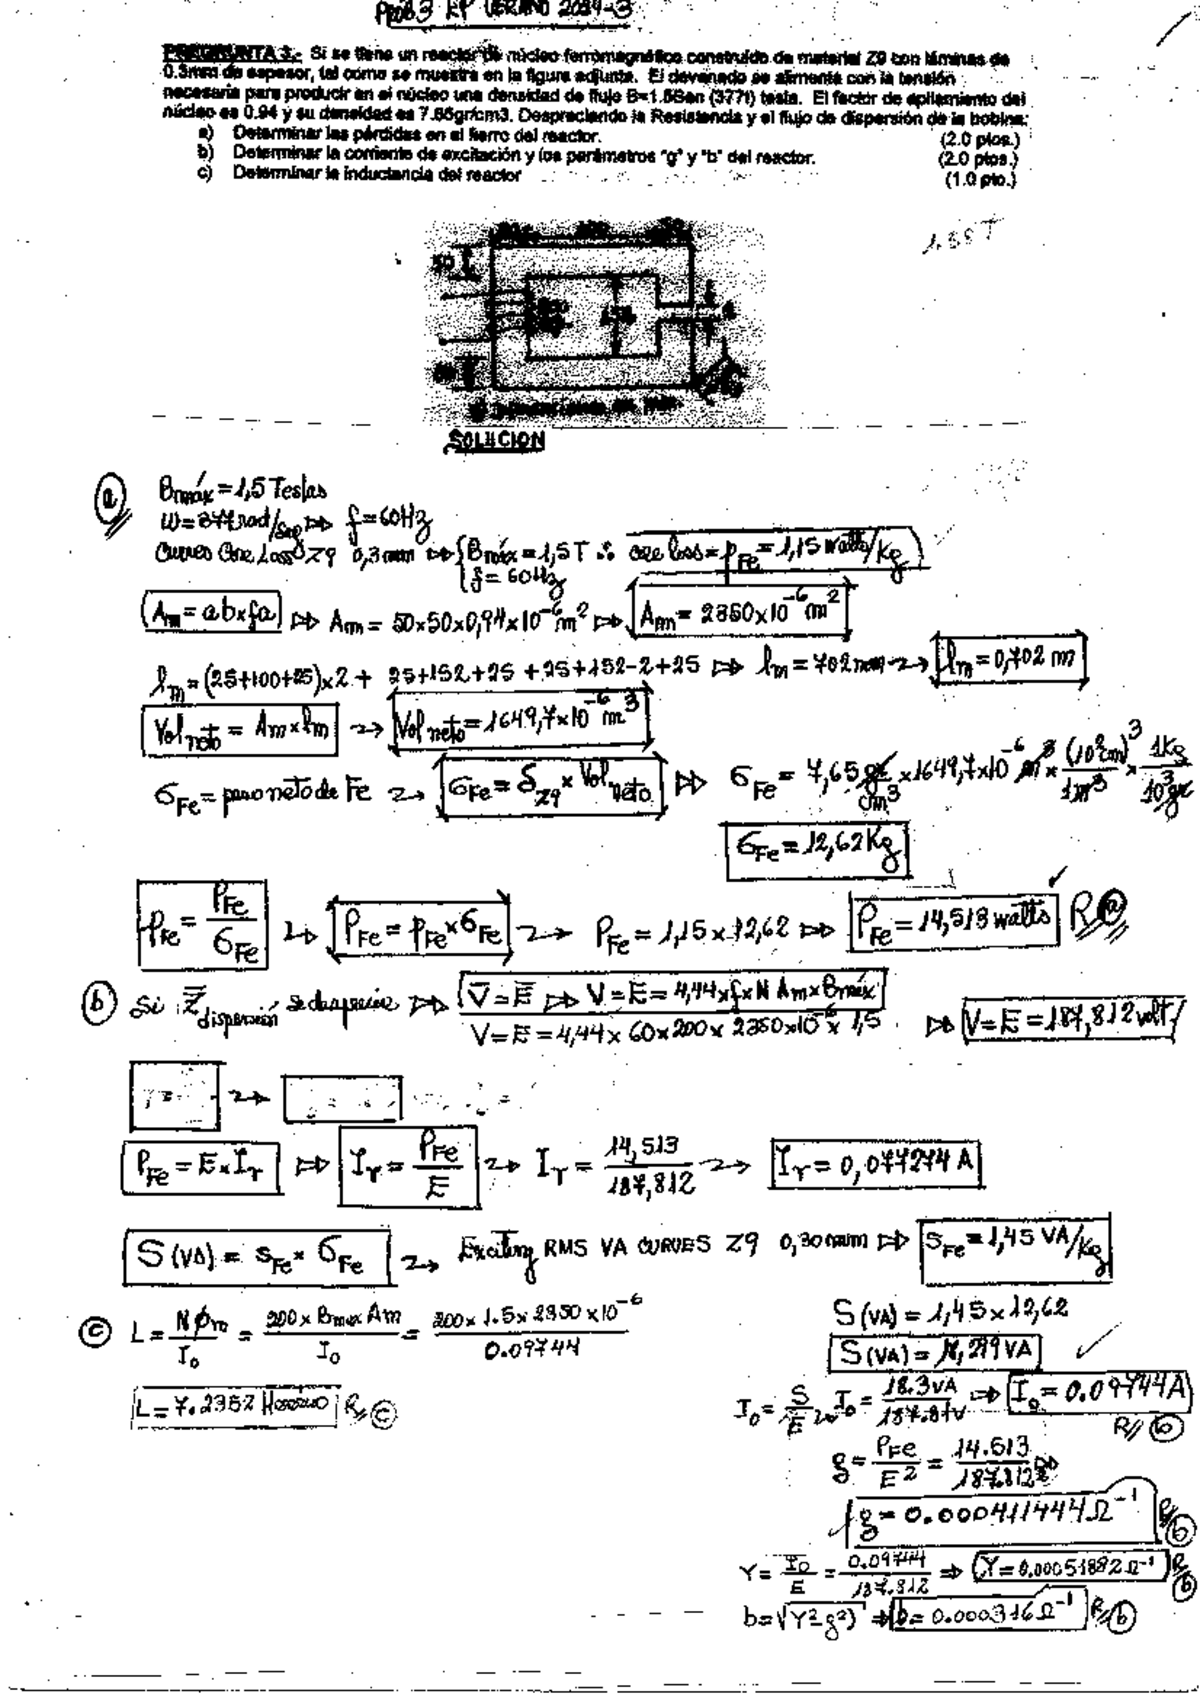 PROB 3 EP VERANO 2004-3
PREGUNTA 3.- Si se tiene un reactor de núcleo ferromagnético construido de material Z9 con láminas de
0.3mm de espesor, tal como se muestra en la figura adjunta. El devanado se alimenta con la tensión
necesaria para producir en el núcleo una densidad de flujo B=1.5Sen (377t) tesla. El factor de apilamiento del
núcleo es 0.94 y su densidad es 7.65gr/cm3. Despreciando la Resistencia y el flujo de dispersión de la bobina:
a) Determinar las pérdidas en el fierro del reactor. (2.0 ptos.)
b) Determinar la corriente de excitación y los parámetros "g" y "b" del reactor. (2.0 ptos.)
c) Determinar la inductancia del reactor (1.0 pto.)
1.38T
50
152
SOLUCION
a) Bmáx = 1,5 Teslas
W = 377 rad/seg ⇒ f = 60Hz
Curves Core Loss Z9 0,3 mm ⇒ { Bmáx = 1,5 T ∴ core loss = pFe = 1,15 watts/Kg
f = 60Hz
Am = a b x fa ⇒ Am = 50x50x0,94x10^-6 m² ⇒ Am = 2350x10^-6 m²
lm = (25+100+25)x2 + 25+152+25 + 25+152-2+25 ⇒ lm = 702 mm → lm = 0,702 m
Vol neto = Am x lm → Vol neto = 1649,7x10^-6 m³
GFe = peso neto de Fe → GFe = δZ9 x Vol neto ⇒ GFe = 7,65 gr/cm³ x 1649,7x10^-6 m³ x (10²cm)³/1m³ x 1Kg/10³gr
GFe = 12,62 Kg
pFe = PFe/GFe → PFe = pFe x GFe → PFe = 1,15 x 12,62 ⇒ PFe = 14,513 watts R// a
b) Si Z̄ dispersión se desprecia ⇒ V̄ = Ē ⇒ V = E = 4,44 x f x N Am x Bmáx
V = E = 4,44 x 60 x 200 x 2350x10^-6 x 1,5 ⇒ V = E = 187,812 volt
PFe = E x Ir ⇒ Ir = PFe/E → Ir = 14,513/187,812 → Ir = 0,077274 A
S (VA) = sFe x GFe → Exciting RMS VA CURVES Z9 0,30 mm ⇒ sFe = 1,45 VA/Kg
c) L = N φm/Io = 200 x Bmax Am/Io = 200 x 1.5 x 2350 x 10^-6/0.09744
L = 7.2352 Henrio R// c
S (VA) = 1,45 x 12,62
S (VA) = 18,299 VA
Io = S/E → Io = 18.3 VA/187.81V ⇒ Io = 0.09744 A
R// b
g = PFe/E² = 14.513/187.812² ⇒
g = 0.000411444 Ω^-1 R// b
Y = Io/E = 0.09744/187.812 ⇒ Y = 0.00051882 Ω^-1 R// b
b = √(Y²-g²) ⇒ b = 0.000316 Ω^-1 R// b